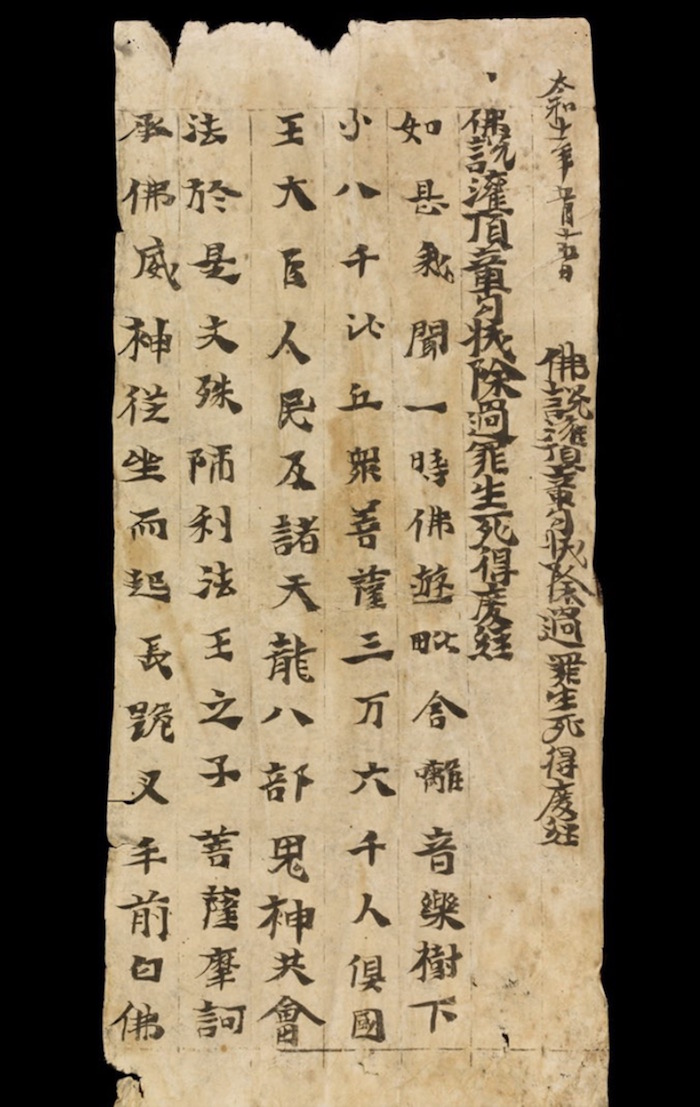 太和十一年五月十五日
佛說灌頂章句拔除過罪生死得度經
佛說灌頂章句拔除過罪生死得度經
如是我聞一時佛遊毗舍囄音樂樹下
与八千比丘眾菩薩三万六千人俱國
王大臣人民及諸天龍八部鬼神共會
法於是文殊師利法王之子菩薩摩訶
承佛威神從坐而起長跪叉手前白佛